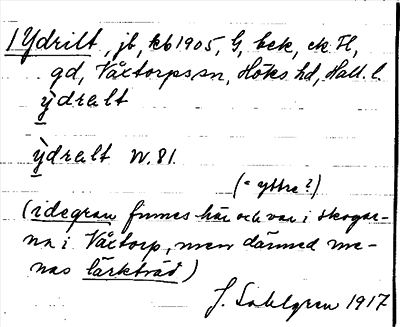 1 Ydrilt, jb, kb 1905, G, bek, ek. H,
gd, Våxtorps sn, Höks hd, Hall. l.
ỳdralt
ỳdralt W. 81.
(= yttre?)
(idegran finnes här och var i skogar-
na i Våxtorp, men därmed me-
nas lärkträd)
J. Sahlgren 1917